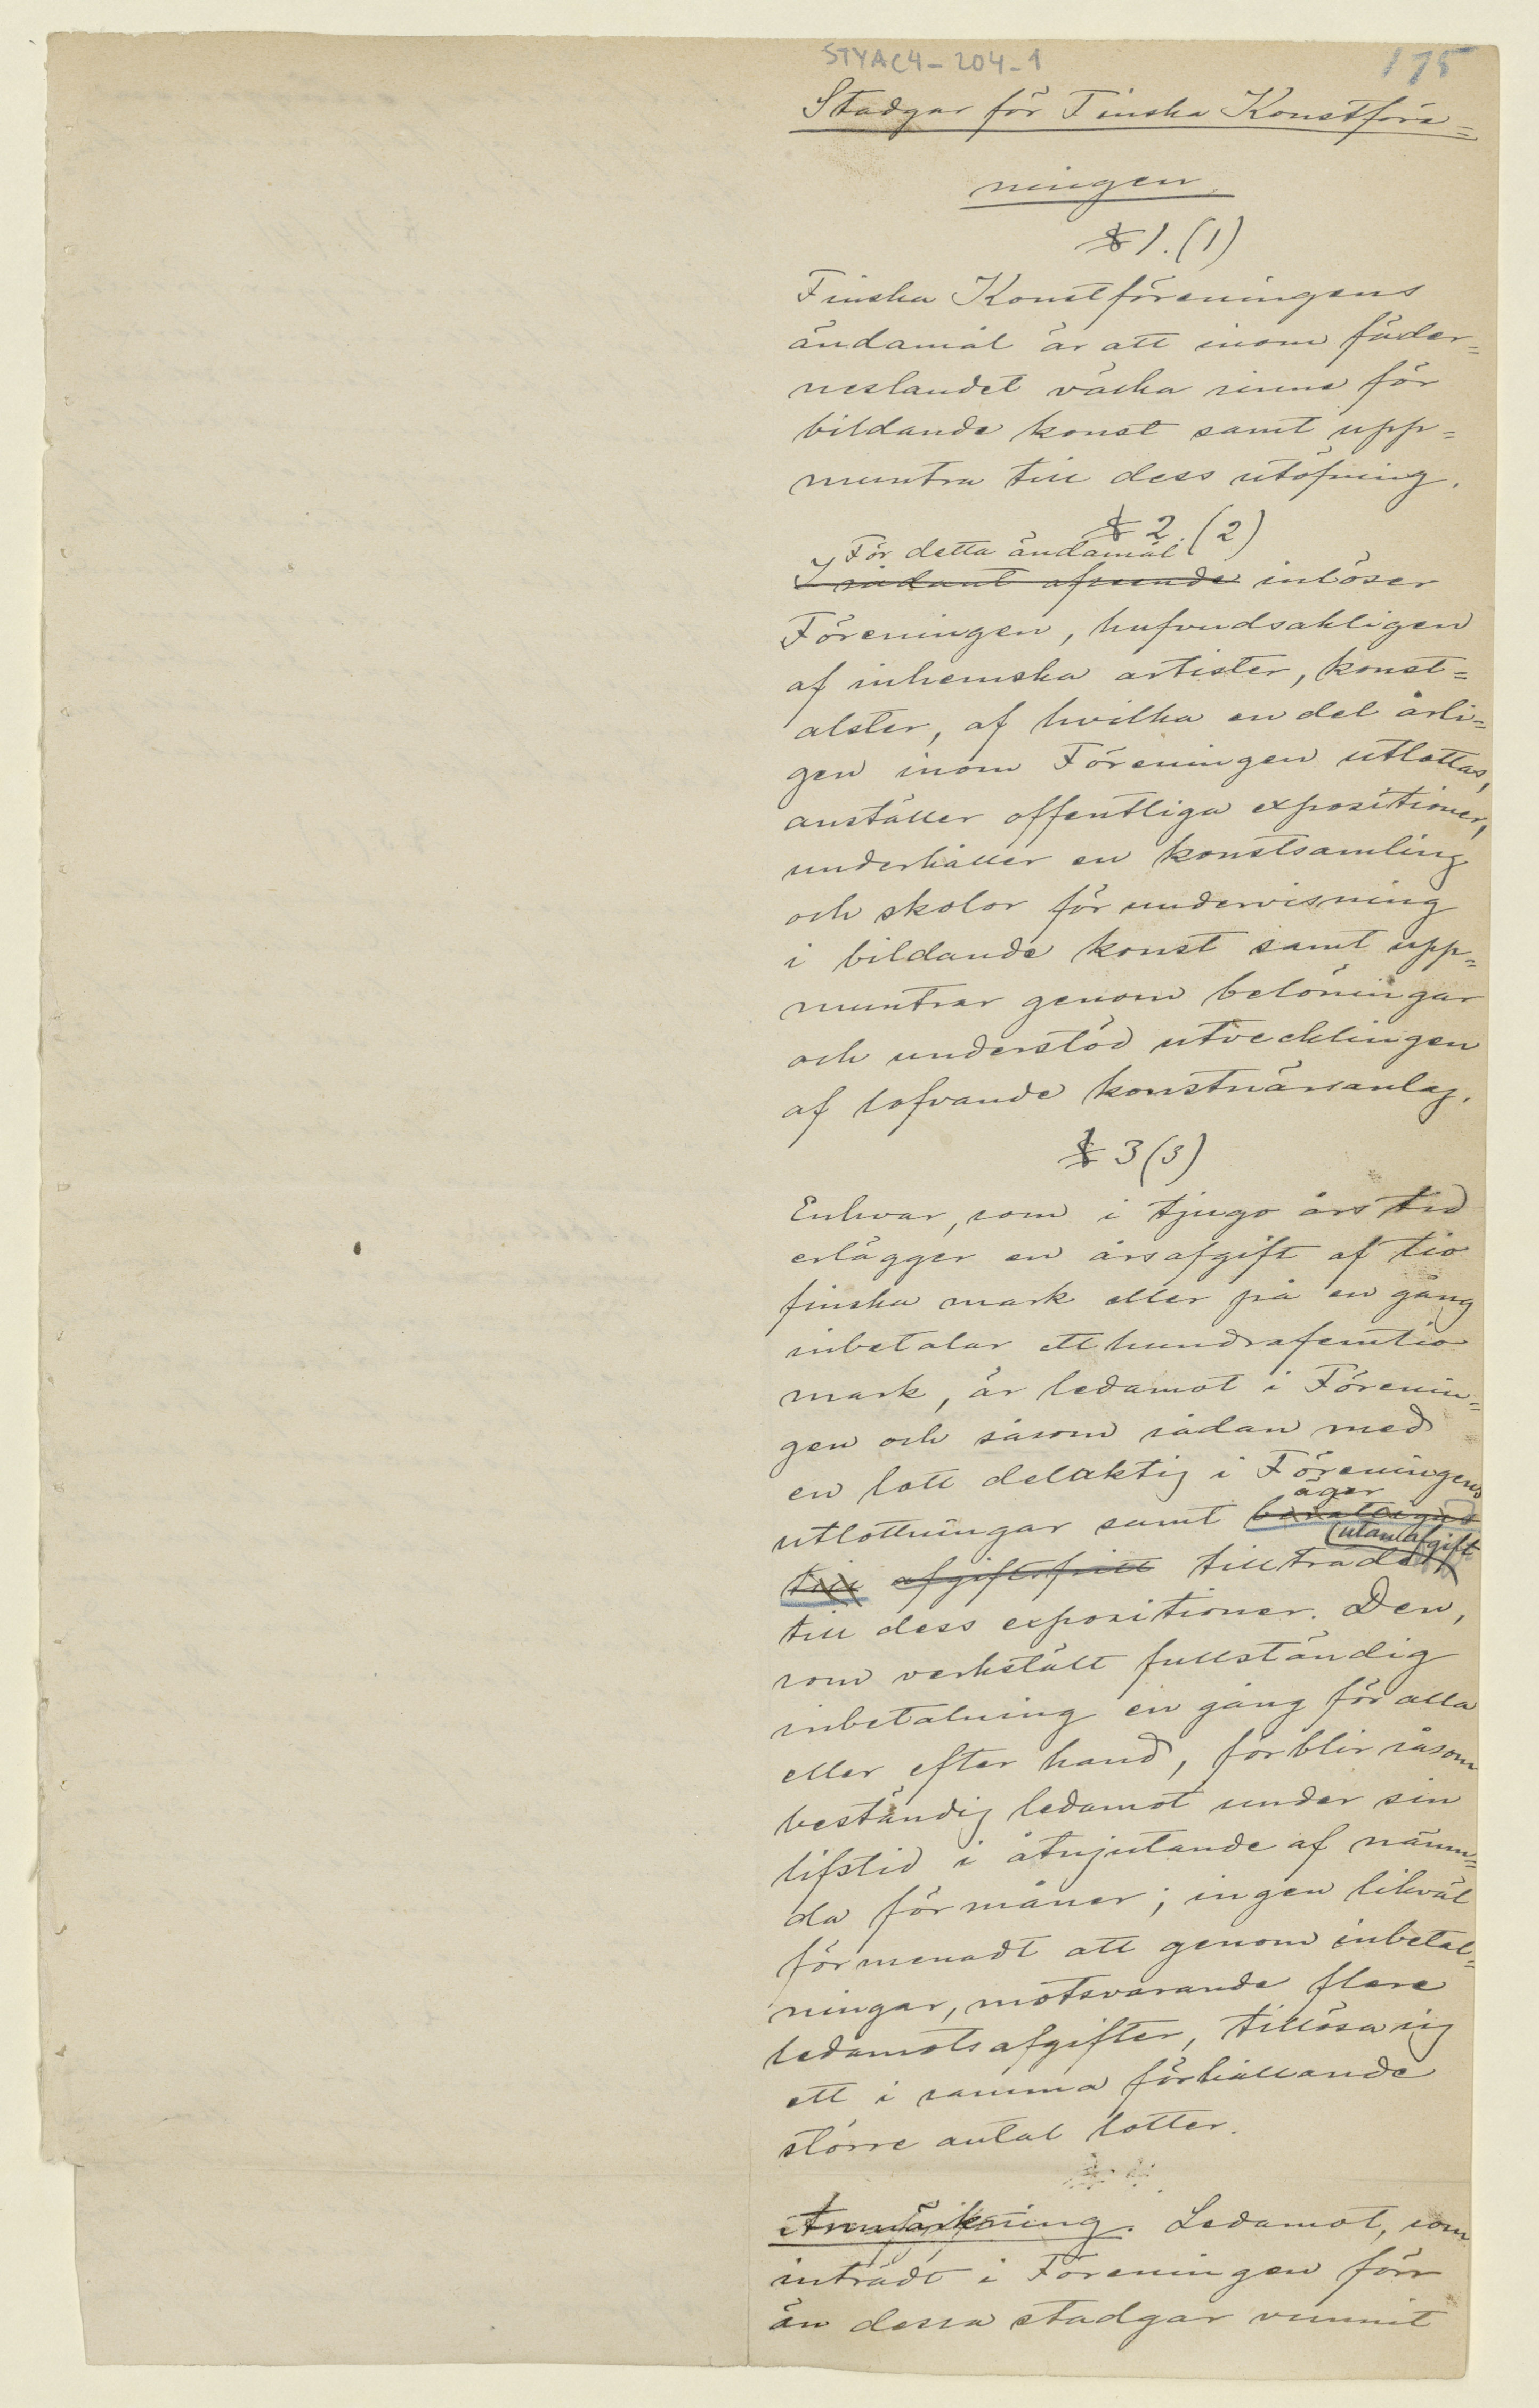 STYAC4-204-1
175
Stadgar för Finska Konstföre=
ningen.
§ 1. (1)
Finska Konstföreningens
ändamål är att inom fäder=
neslandet väcka sinne för
bildande konst samt upp=
muntra till dess utöfning.
§ 2. (2)
För detta ändamål
I sådant afseende inlöser
Föreningen, hufvudsakligen
af inhemska artister, konst=
alster, af hvilka en del årli=
gen inom Föreningen utlottas,
anställer offentliga expositioner,
underhåller en konstsamling
och skolor för undervisning
i bildande konst samt upp=
muntrar genom belöningar
och understöd utvecklingen
af lofvande konstnärsanlag.
§ 3 (3)
Enhvar, som i tjugo års tid
erlägger en årsafgift af tio
finska mark eller på en gång
inbetalar ett hundrafemtio
mark, är ledamot i Förenin=
gen och såsom sådan med
en lott delaktig i Föreningens
äger
utlottningar samt berättigad
(utan afgift
till afgiftsfritt tillträde
till dess expositioner. Den,
som verkstält fullständig
inbetalning en gång för alla
eller efter hand, förblir såsom
beständig ledamot under sin
lifstid i åtnjutande af nämn=
da förmåner; ingen likväl
förmenadt att genom inbetal=
ningar, motsvarande flere
ledamotsafgifter, tillösa sig
ett i samma förhållande
större antal lotter.
Anmärkning. Ledamot, som
inträdt i Föreningen förr
än dessa stadgar vunnit